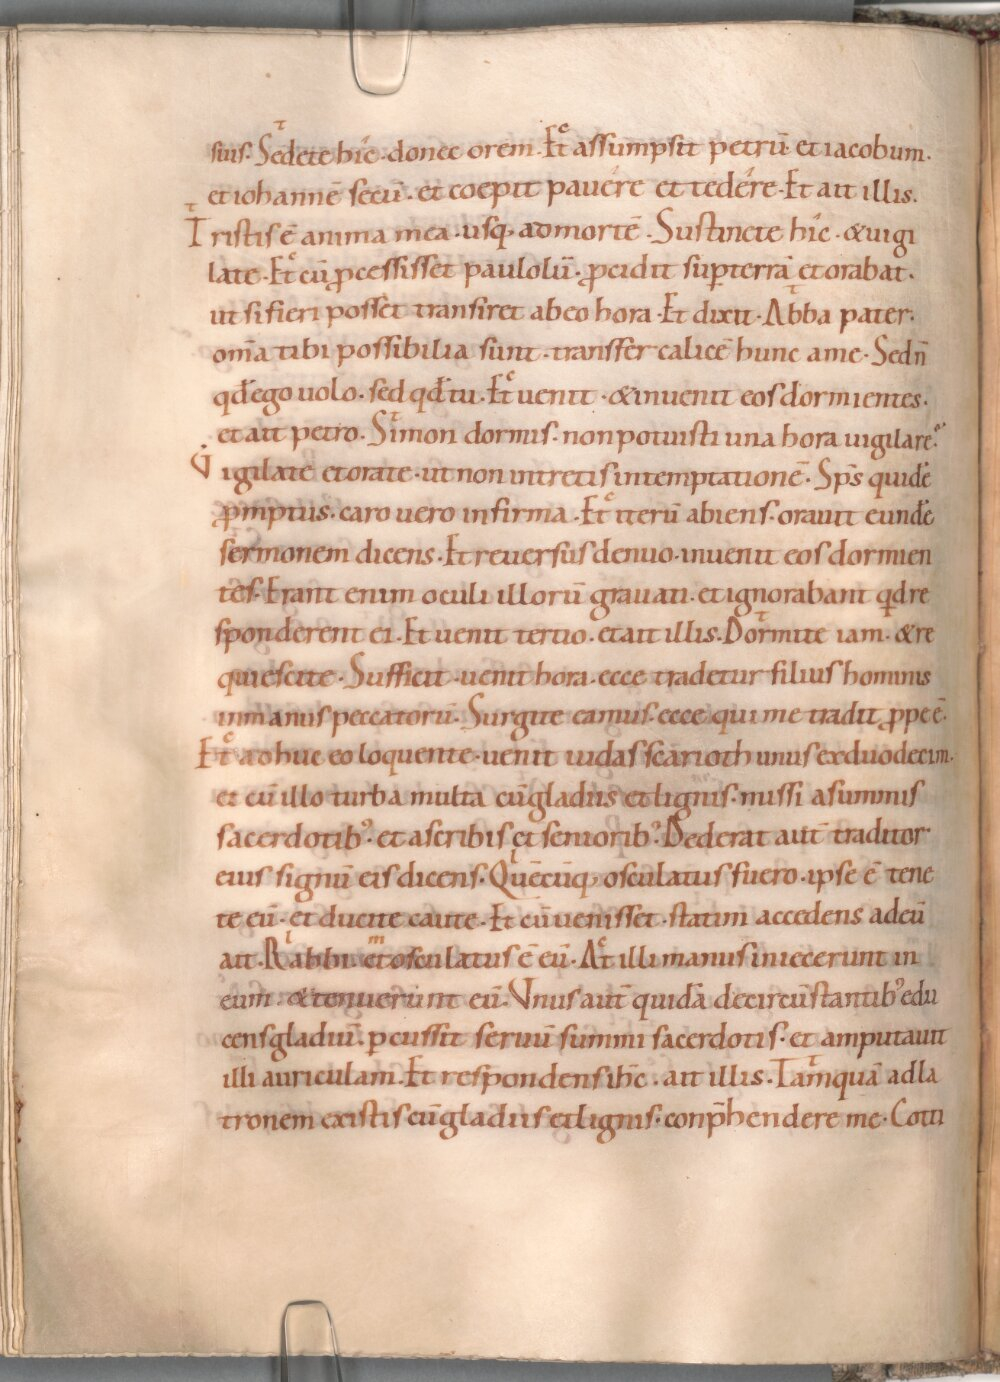 suis. Sedete hic. donec orem. Et assumpsit petrū et iacobum.
et iohannē secū. et coepit pavere et tedere. Et ait illis.
Tristis ē anima mea. usq, admortē. Sustinete hic. &uigi
late. Et cū pcessisset paululū. pcidit sup terrā et orabat.
ut si fieri posset transiret abeo hora. Et dixit. Abba pater.
om̄a tibi possibilia sunt. transfer calicē hunc ame. Sed n̄
qđ ego uolo. sed qđ tu. Et uenit. &inuenit eos dormientes.
et ait petro. Simon dormis. non potuisti una hora uigilare.
Vigilate et orate. ut non intretis intemptationē. Sp̄s quidē
promptus. caro uero infirma. Et iterū abiens. orauit eundē
sermonem dicens. Et reuersus denuo. inuenit eos dormien
tes. Erant enim oculi illorū grauati. et ignorabant qđ re
sponderent ei. Et uenit tertio. et ait illis. Dormite iam. &re
quiescite. Sufficit. uenit hora. ecce tradetur filius hominis
inmanus peccatorū. Surgite eamus. ecce qui me tradit ppe ē.
Et adhuc eo loquente. uenit iudas scarioth unus exduodecim.
et cū illo turba multa cū gladiis et lignis. missi asummis
sacerdotib; et ascribis et seniorib; Dederat aut̄ traditor
eius signū eis dicens. Quēcūq, osculatus fuero. ipse ē tene
te eū. et ducite caute. Et cū uenisset. statim accedens adeū
ait. Rabbi. et osculatus ē eū. At illi manus iniecerunt in
eum. &tenuerunt eū. Vnus aut̄ quidā decircūstantib; edu
cens gladiū. pcussit seruū summi sacerdotis. et amputauit
illi auriculam. Et respondens ih̄c. ait illis. Tamquā adla
tronem existis cū gladiis et lignis. conp̄hendere me. Coti